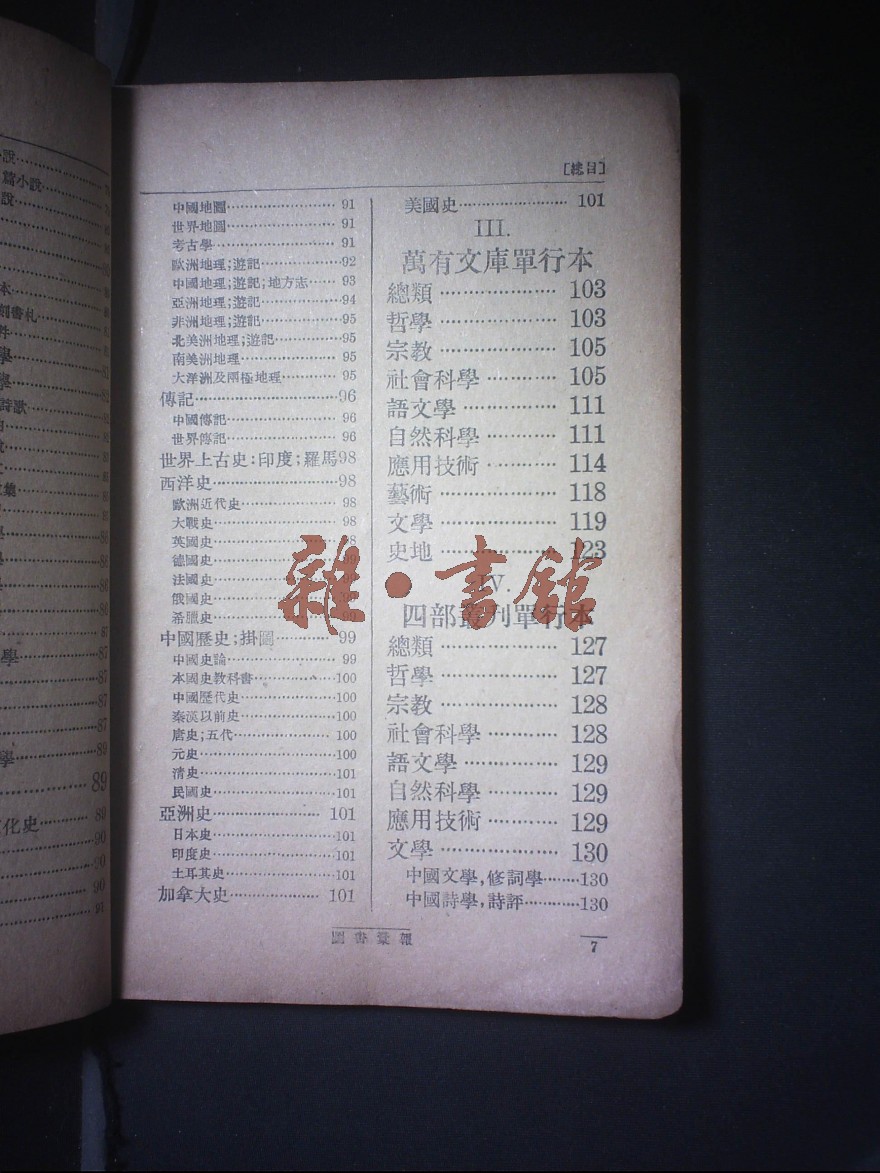 說
篇小說
說
本
刻書札
件
學
學
詩歌
集
學
學 87
87
87
89
學
89
化史 89
90
90
90
91
[總目]
中國地圖 91
世界地圖 91
考古學 91
歐洲地理;遊記 92
中國地理;遊記;地方志 93
亞洲地理;遊記 94
非洲地理;遊記 95
北美洲地理;遊記 95
南美洲地理 95
大洋洲及兩極地理 95
傳記 96
中國傳記 96
世界傳記 96
世界上古史:印度;羅馬 98
西洋史 98
歐洲近代史 98
大戰史 98
英國史
德國史
法國史
俄國史
希臘史
中國歷史;掛圖 99
中國史論 99
本國史教科書 100
中國歷代史 100
秦漢以前史 100
唐史;五代 100
元史 100
清史 101
民國史 101
亞洲史 101
日本史 101
印度史 101
土耳其史 101
加拿大史 101
美國史 101
III.
萬有文庫單行本
總類 103
哲學 103
宗教 105
社會科學 105
語文學 111
自然科學 111
應用技術 114
藝術 118
文學 119
史地 123
IV.
四部叢刊單行本
總類 127
哲學 127
宗教 128
社會科學 128
語文學 129
自然科學 129
應用技術 129
文學 130
中國文學,修詞學 130
中國詩學,詩評 130
圖書彙報
7
雜·書館